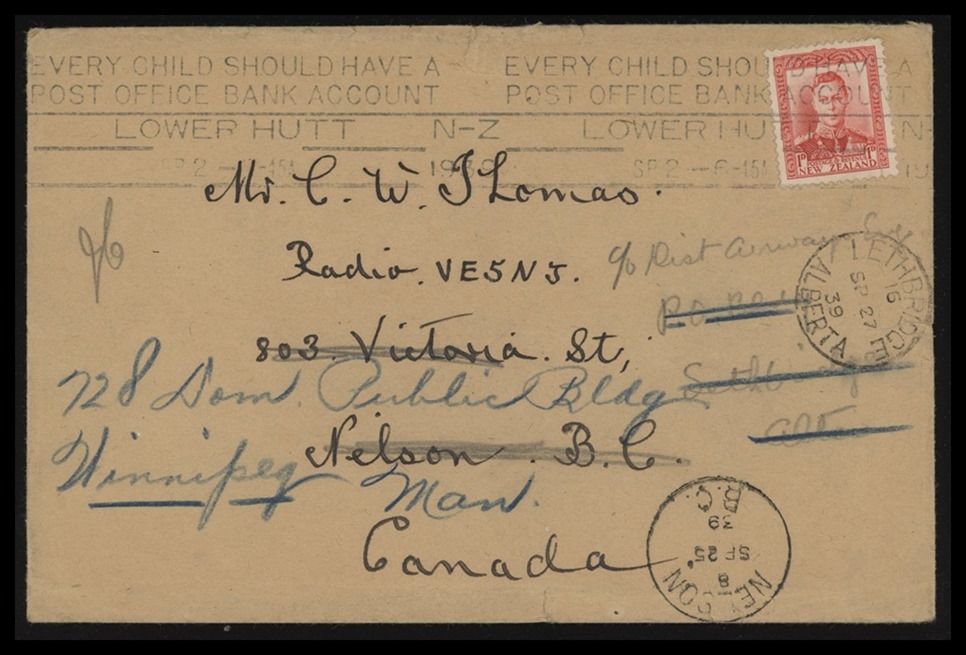 EVERY CHILD SHOULD HAVE A EVERY CHILD SHOULD HAVE A
POST OFFICE BANK ACCOUNT POST OFFICE BANK ACCOUNT
LOWER HUTT N-Z LOWER HUTT N-
SP 2 -6-15 1939 SP 2 -6-15 19
1D 1D
NEW ZEALAND
Mr. C. W. Thomas.
Radio. VE5NJ. c/o Dist Airways
803. Victoria. St,
728 Dom. Public Bldg
Nelson. B.C.
Winnipeg Man.
Canada
LETHBRIDGE
16
SP 27
39
ALBERTA
NELSON
8
SP 25
39
B.C.